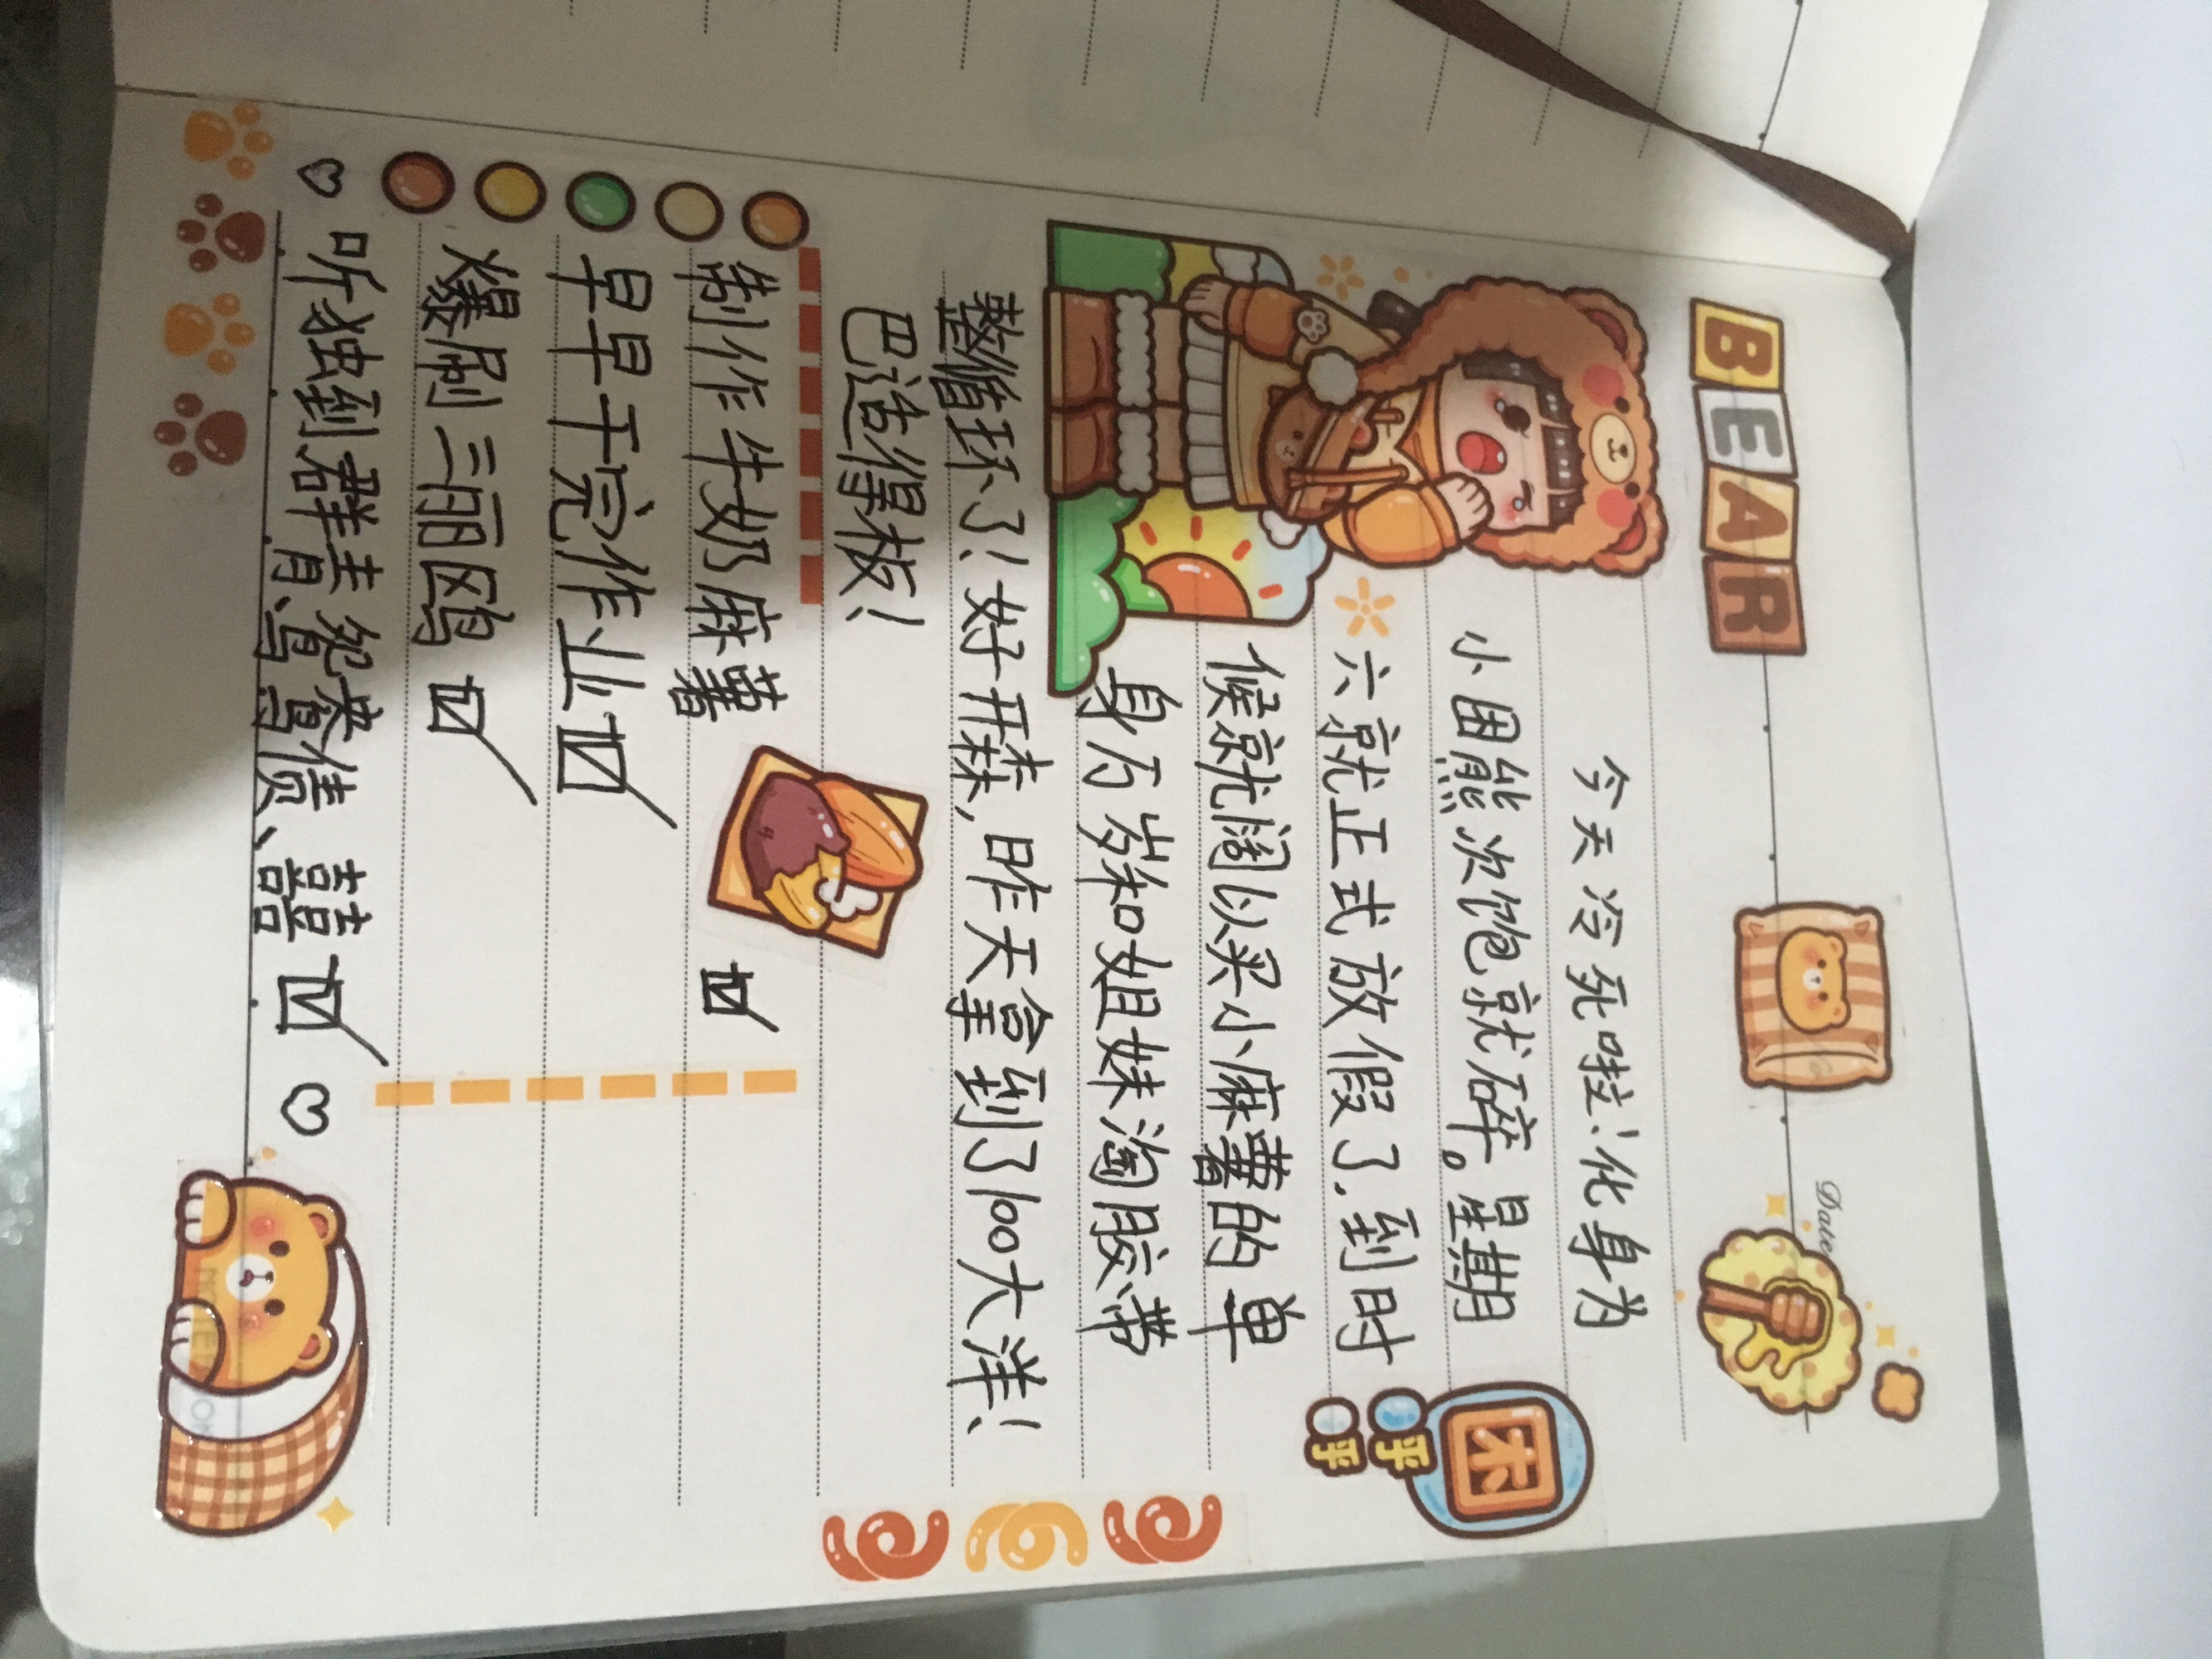 BEAR
Date
今天冷死啦！化身为
小困熊次饱就碎。星期
六就正式放假了，到时
候就阔以买小麻薯的单
身历岁和姐妹淘胶带
整循环了！好开森，昨天拿到了100大洋！
巴适得板！
困
呼
呼
制作牛奶麻薯
早早干完作业
爆刷三丽鸥
听独到群青、鸳鸯债、囍